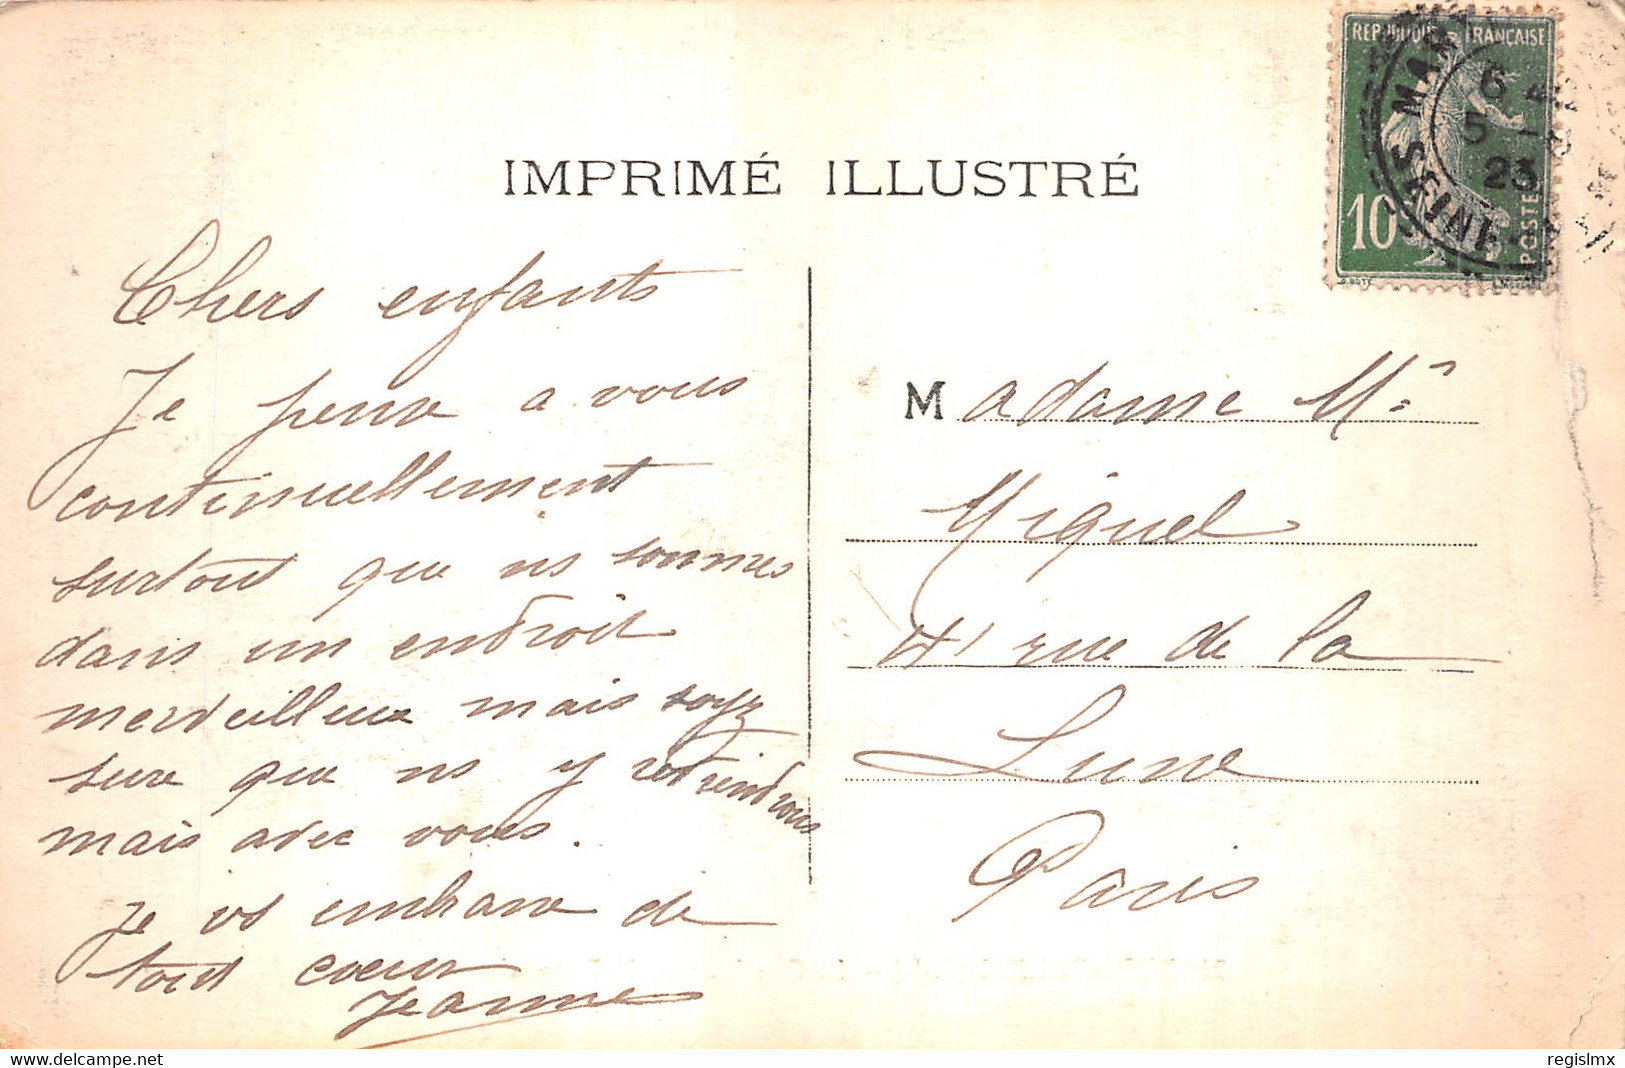 IMPRIMÉ ILLUSTRÉ
RÉPUBLIQUE FRANÇAISE
10
POSTES
6
5
23
Chers enfants
Je pense a vous
continuellement
surtout que ns sommes
dans un endroit
merveilleux mais soyez
sure que ns y reviendrons
mais avec vous.
Je vs embrasse de
tout coeur
Jeanne
Madame
Miguel
41 rue de la
Lune
Paris
regislmx